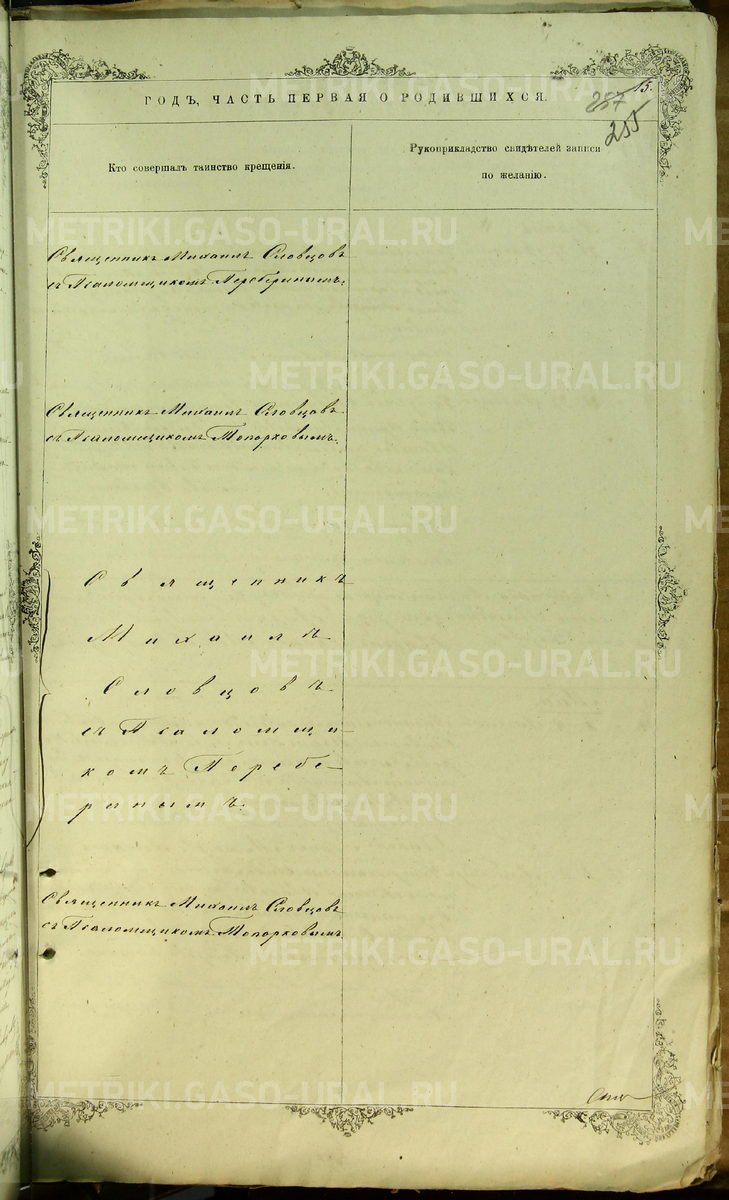 15.
ГОДЪ, ЧАСТЬ ПЕРВАЯ О РОДИВШИХСЯ.
257
255
Кто совершалъ таинство крещенія.
Рукоприкладство свидѣтелей записи
по желанію.
Священникъ Михаилъ Словцовъ
съ Псаломщикомъ Переберинымъ.
Священникъ Михаилъ Словцовъ
съ Псаломщикомъ Топорковымъ.
Священникъ
Михаилъ
Словцовъ
съ Псаломщи-
комъ Теребе-
ринымъ.
Священникъ Михаилъ Словцовъ
съ Псаломщикомъ Топорковымъ.
METRIKI.GASO-URAL.RU